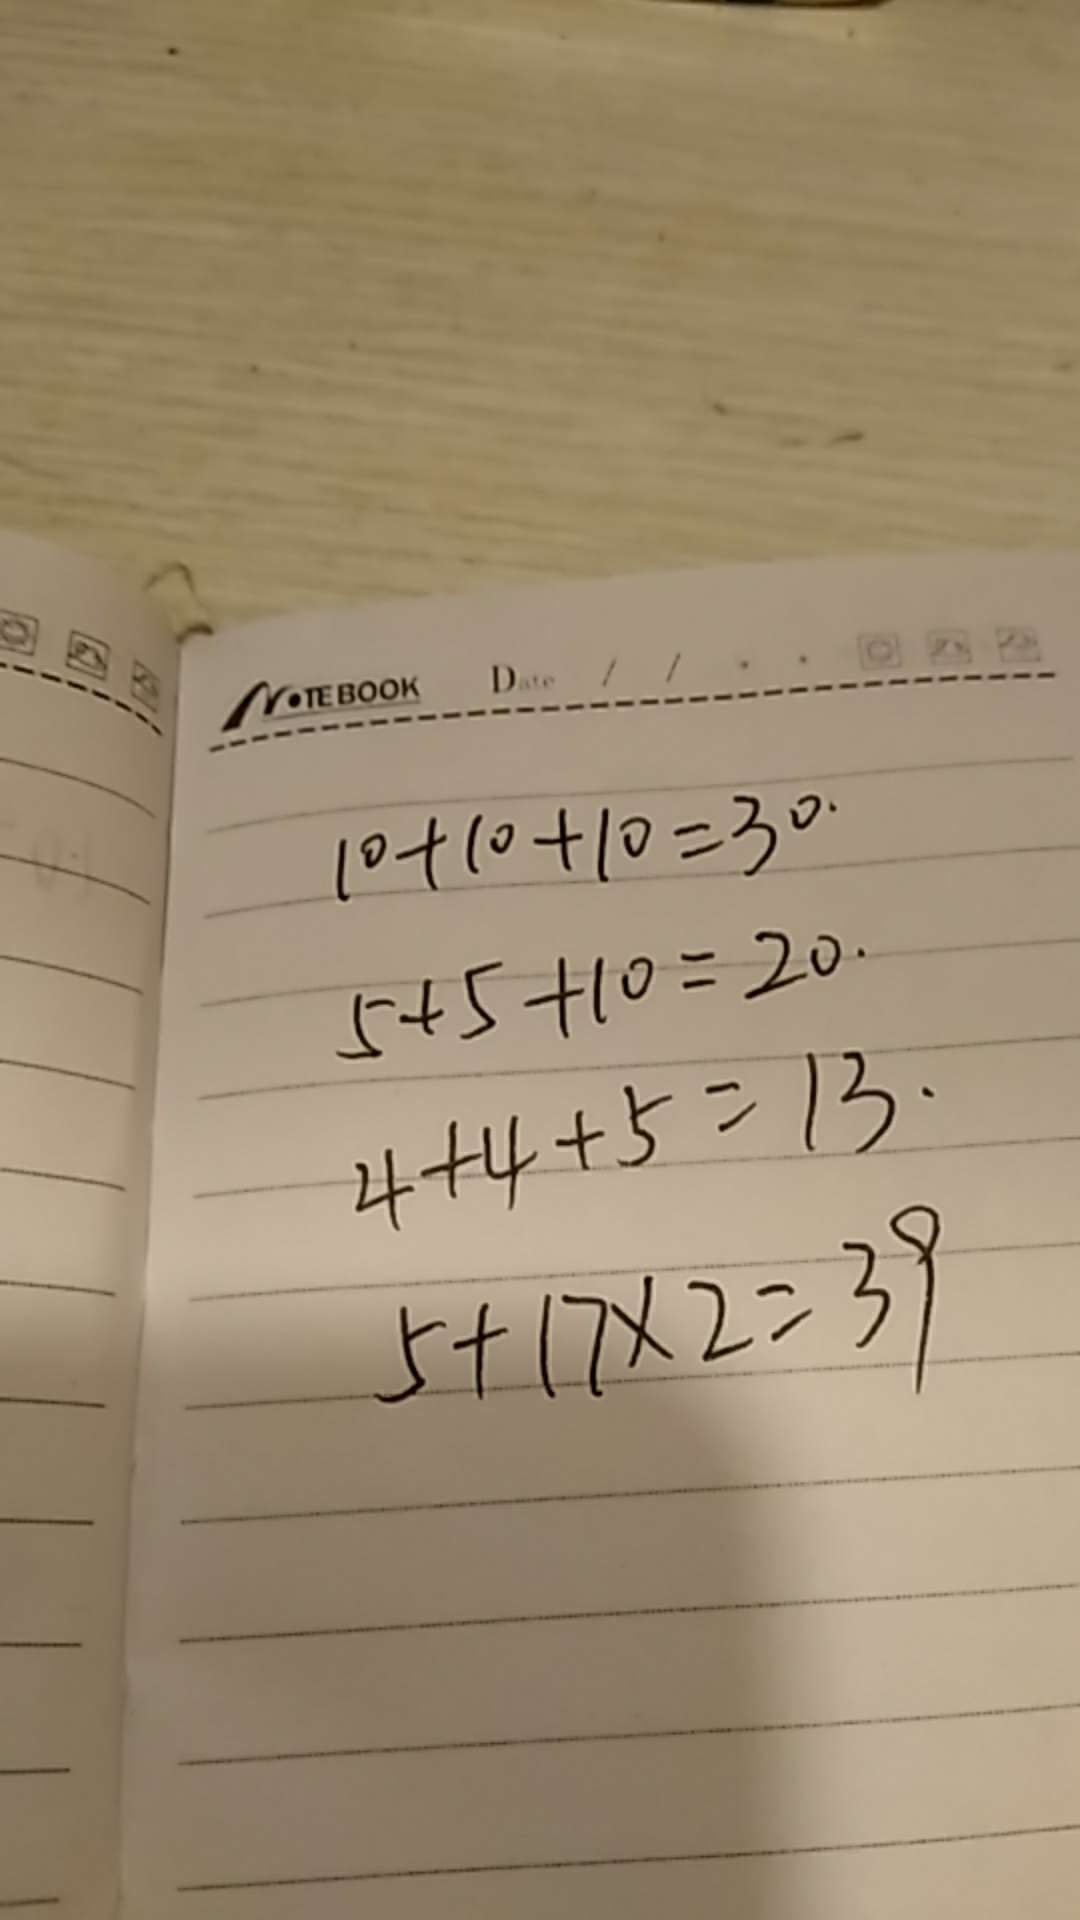 NOTEBOOK Date / /
10+10+10=30.
5+5+10=20.
4+4+5=13.
5+17×2=39